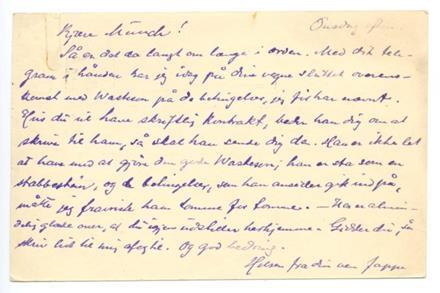 Onsdag
Kjære Munch!
Så er det da langt om længe i orden. Med dit tele-
gram i hånden har jeg idag på dine vegne sluttet overens-
komst med Wastesen på de betingelser, jeg før har nævnt.
Hvis du vil have skriftlig kontrakt, beder han dig om at
skrive til ham, så skal han sende dig da. Han er ikke let
at have med at gjøre den gode Wastesen; han er sta som en
stabbestein, og de betingelser, som han ansider gik ind på,
måtte jeg fravriste ham tomme for tomme. — Ha er almin-
delig glade over, at du igjen udstiller herhjemme. Gidder du, så
skriv lidt til mig
Og god bedring.
Hilsen fra din ven Jappe